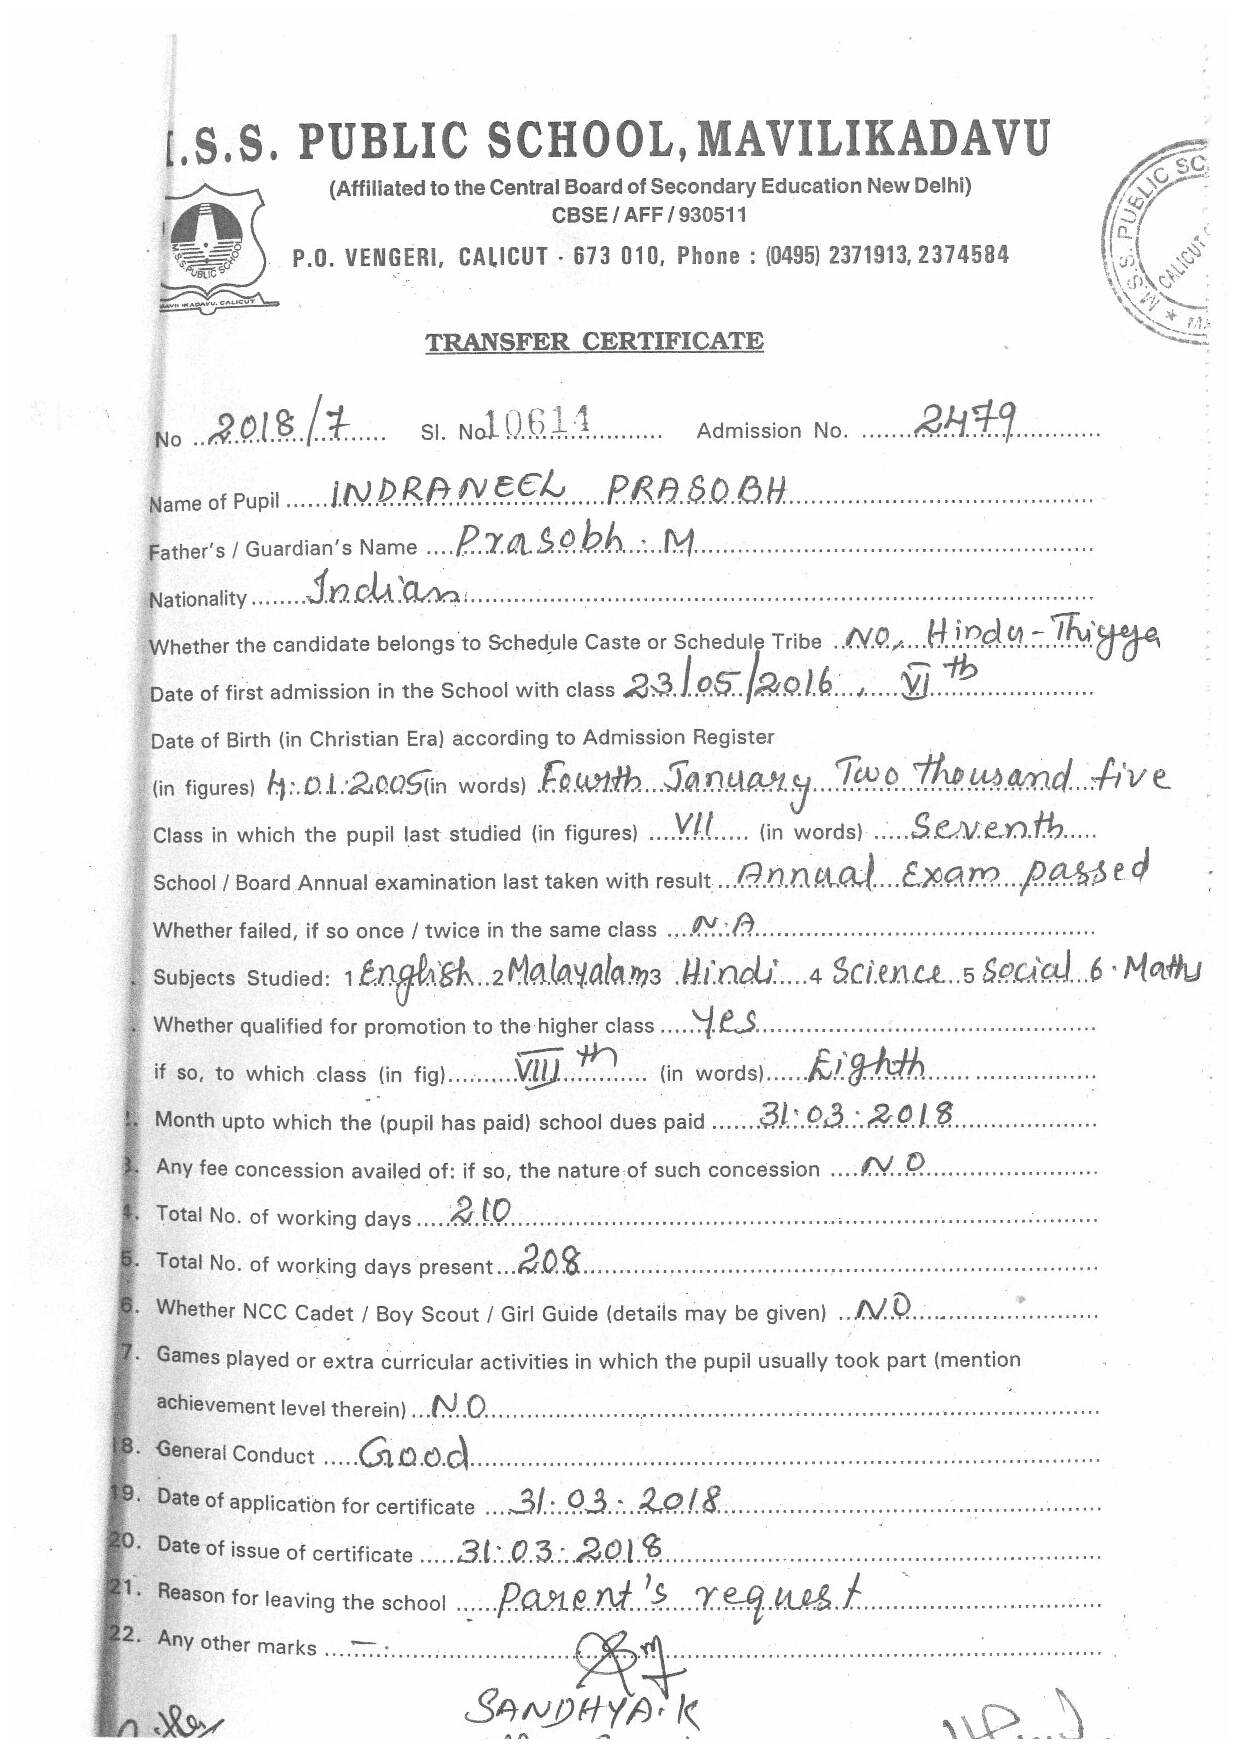 .S.S. PUBLIC SCHOOL, MAVILIKADAVU
(Affiliated to the Central Board of Secondary Education New Delhi)
CBSE / AFF / 930511
P.O. VENGERI, CALICUT - 673 010, Phone : (0495) 2371913, 2374584
M.S.S. PUBLIC SC
CALICUT
M.S.S. PUBLIC SCHOOL
MAVILIKADAVU, CALICUT
TRANSFER CERTIFICATE
No 2018/7 Sl. No 10614 Admission No. 2479
Name of Pupil INDRANEEL PRASOBH
Father's / Guardian's Name Prasobh . M
Nationality Indian
Whether the candidate belongs to Schedule Caste or Schedule Tribe NO, Hindu - Thiyya
Date of first admission in the School with class 23/05/2016, VI th
Date of Birth (in Christian Era) according to Admission Register
(in figures) 4.01.2005 (in words) Fourth January Two thousand five
Class in which the pupil last studied (in figures) VII (in words) Seventh
School / Board Annual examination last taken with result Annual Exam passed
Whether failed, if so once / twice in the same class N.A
Subjects Studied: 1 English 2 Malayalam 3 Hindi 4 Science 5 Social 6. Maths
Whether qualified for promotion to the higher class Yes
if so, to which class (in fig) VIII th (in words) Eighth
Month upto which the (pupil has paid) school dues paid 31.03.2018
3. Any fee concession availed of: if so, the nature of such concession NO
4. Total No. of working days 210
5. Total No. of working days present 208
6. Whether NCC Cadet / Boy Scout / Girl Guide (details may be given) NO
7. Games played or extra curricular activities in which the pupil usually took part (mention
achievement level therein) NO
18. General Conduct Good
19. Date of application for certificate 31.03.2018
20. Date of issue of certificate 31.03.2018
21. Reason for leaving the school Parent's request
22. Any other marks —
SANDHYA.K